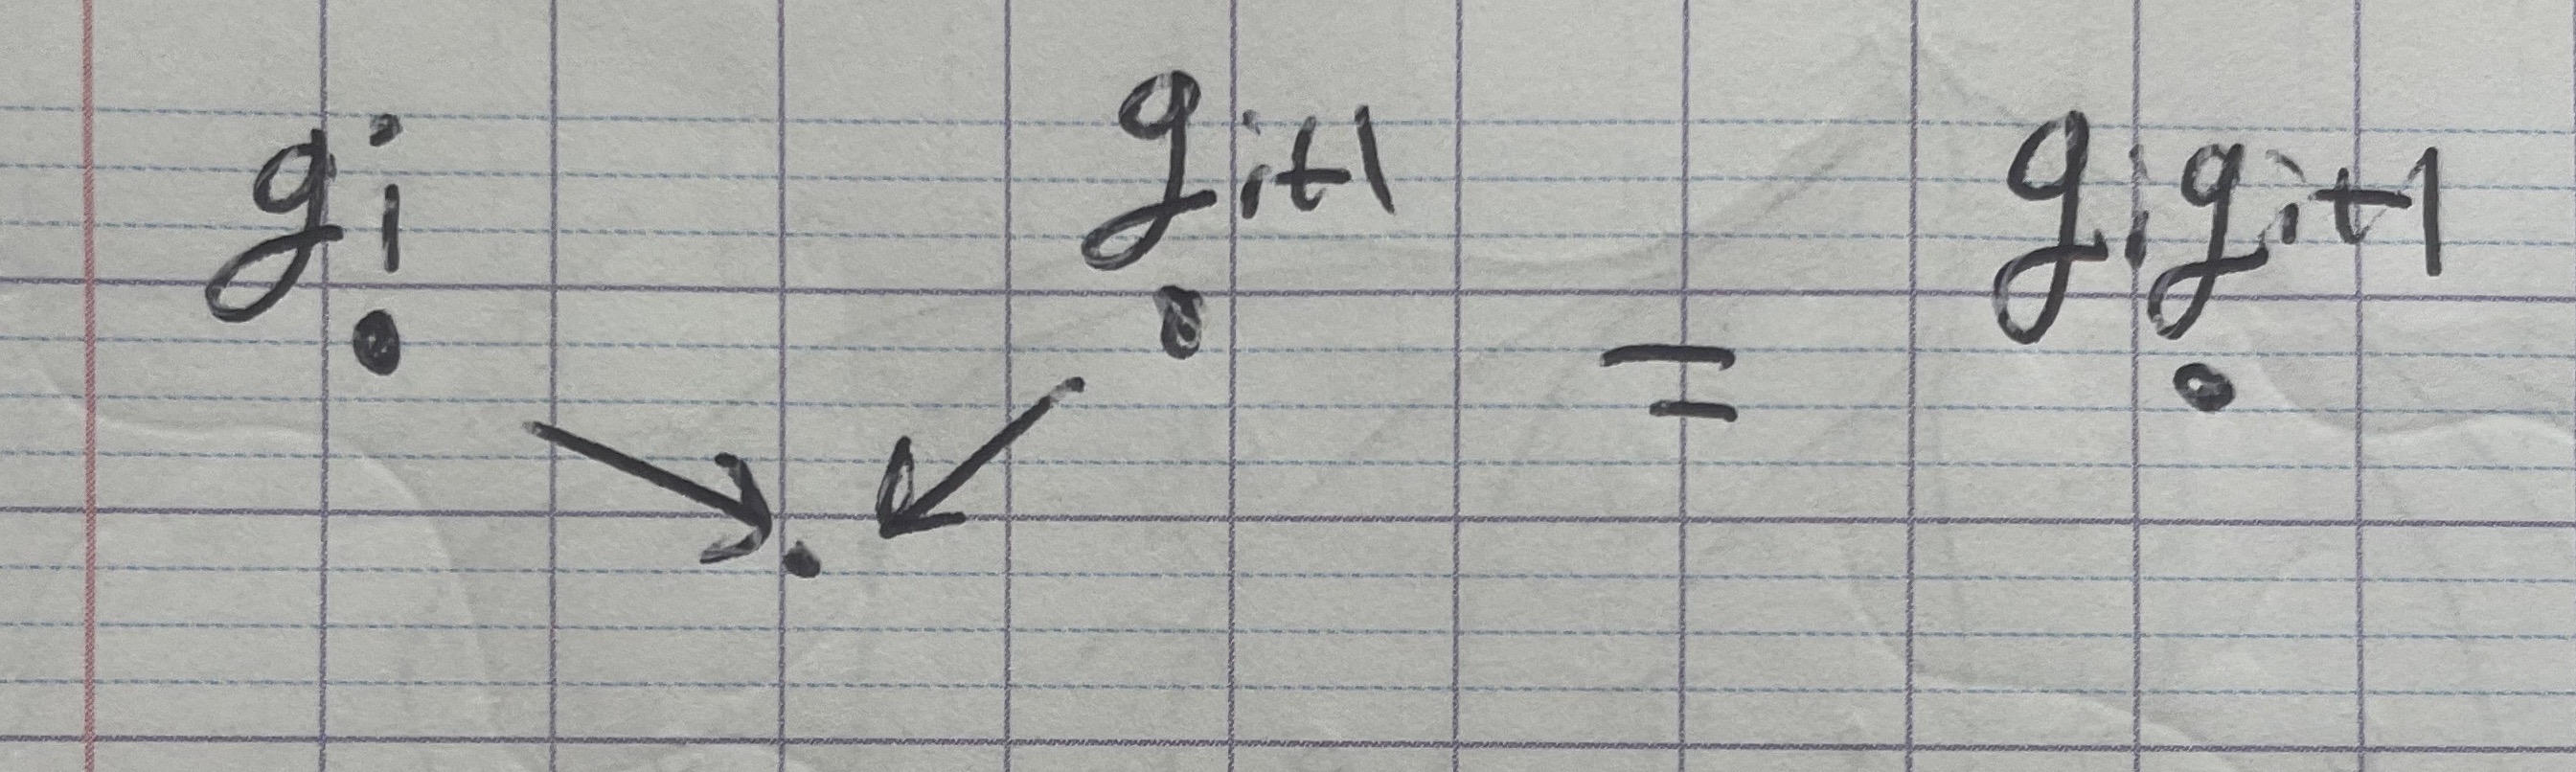 gᵢ gᵢ₊₁ = gᵢgᵢ₊₁